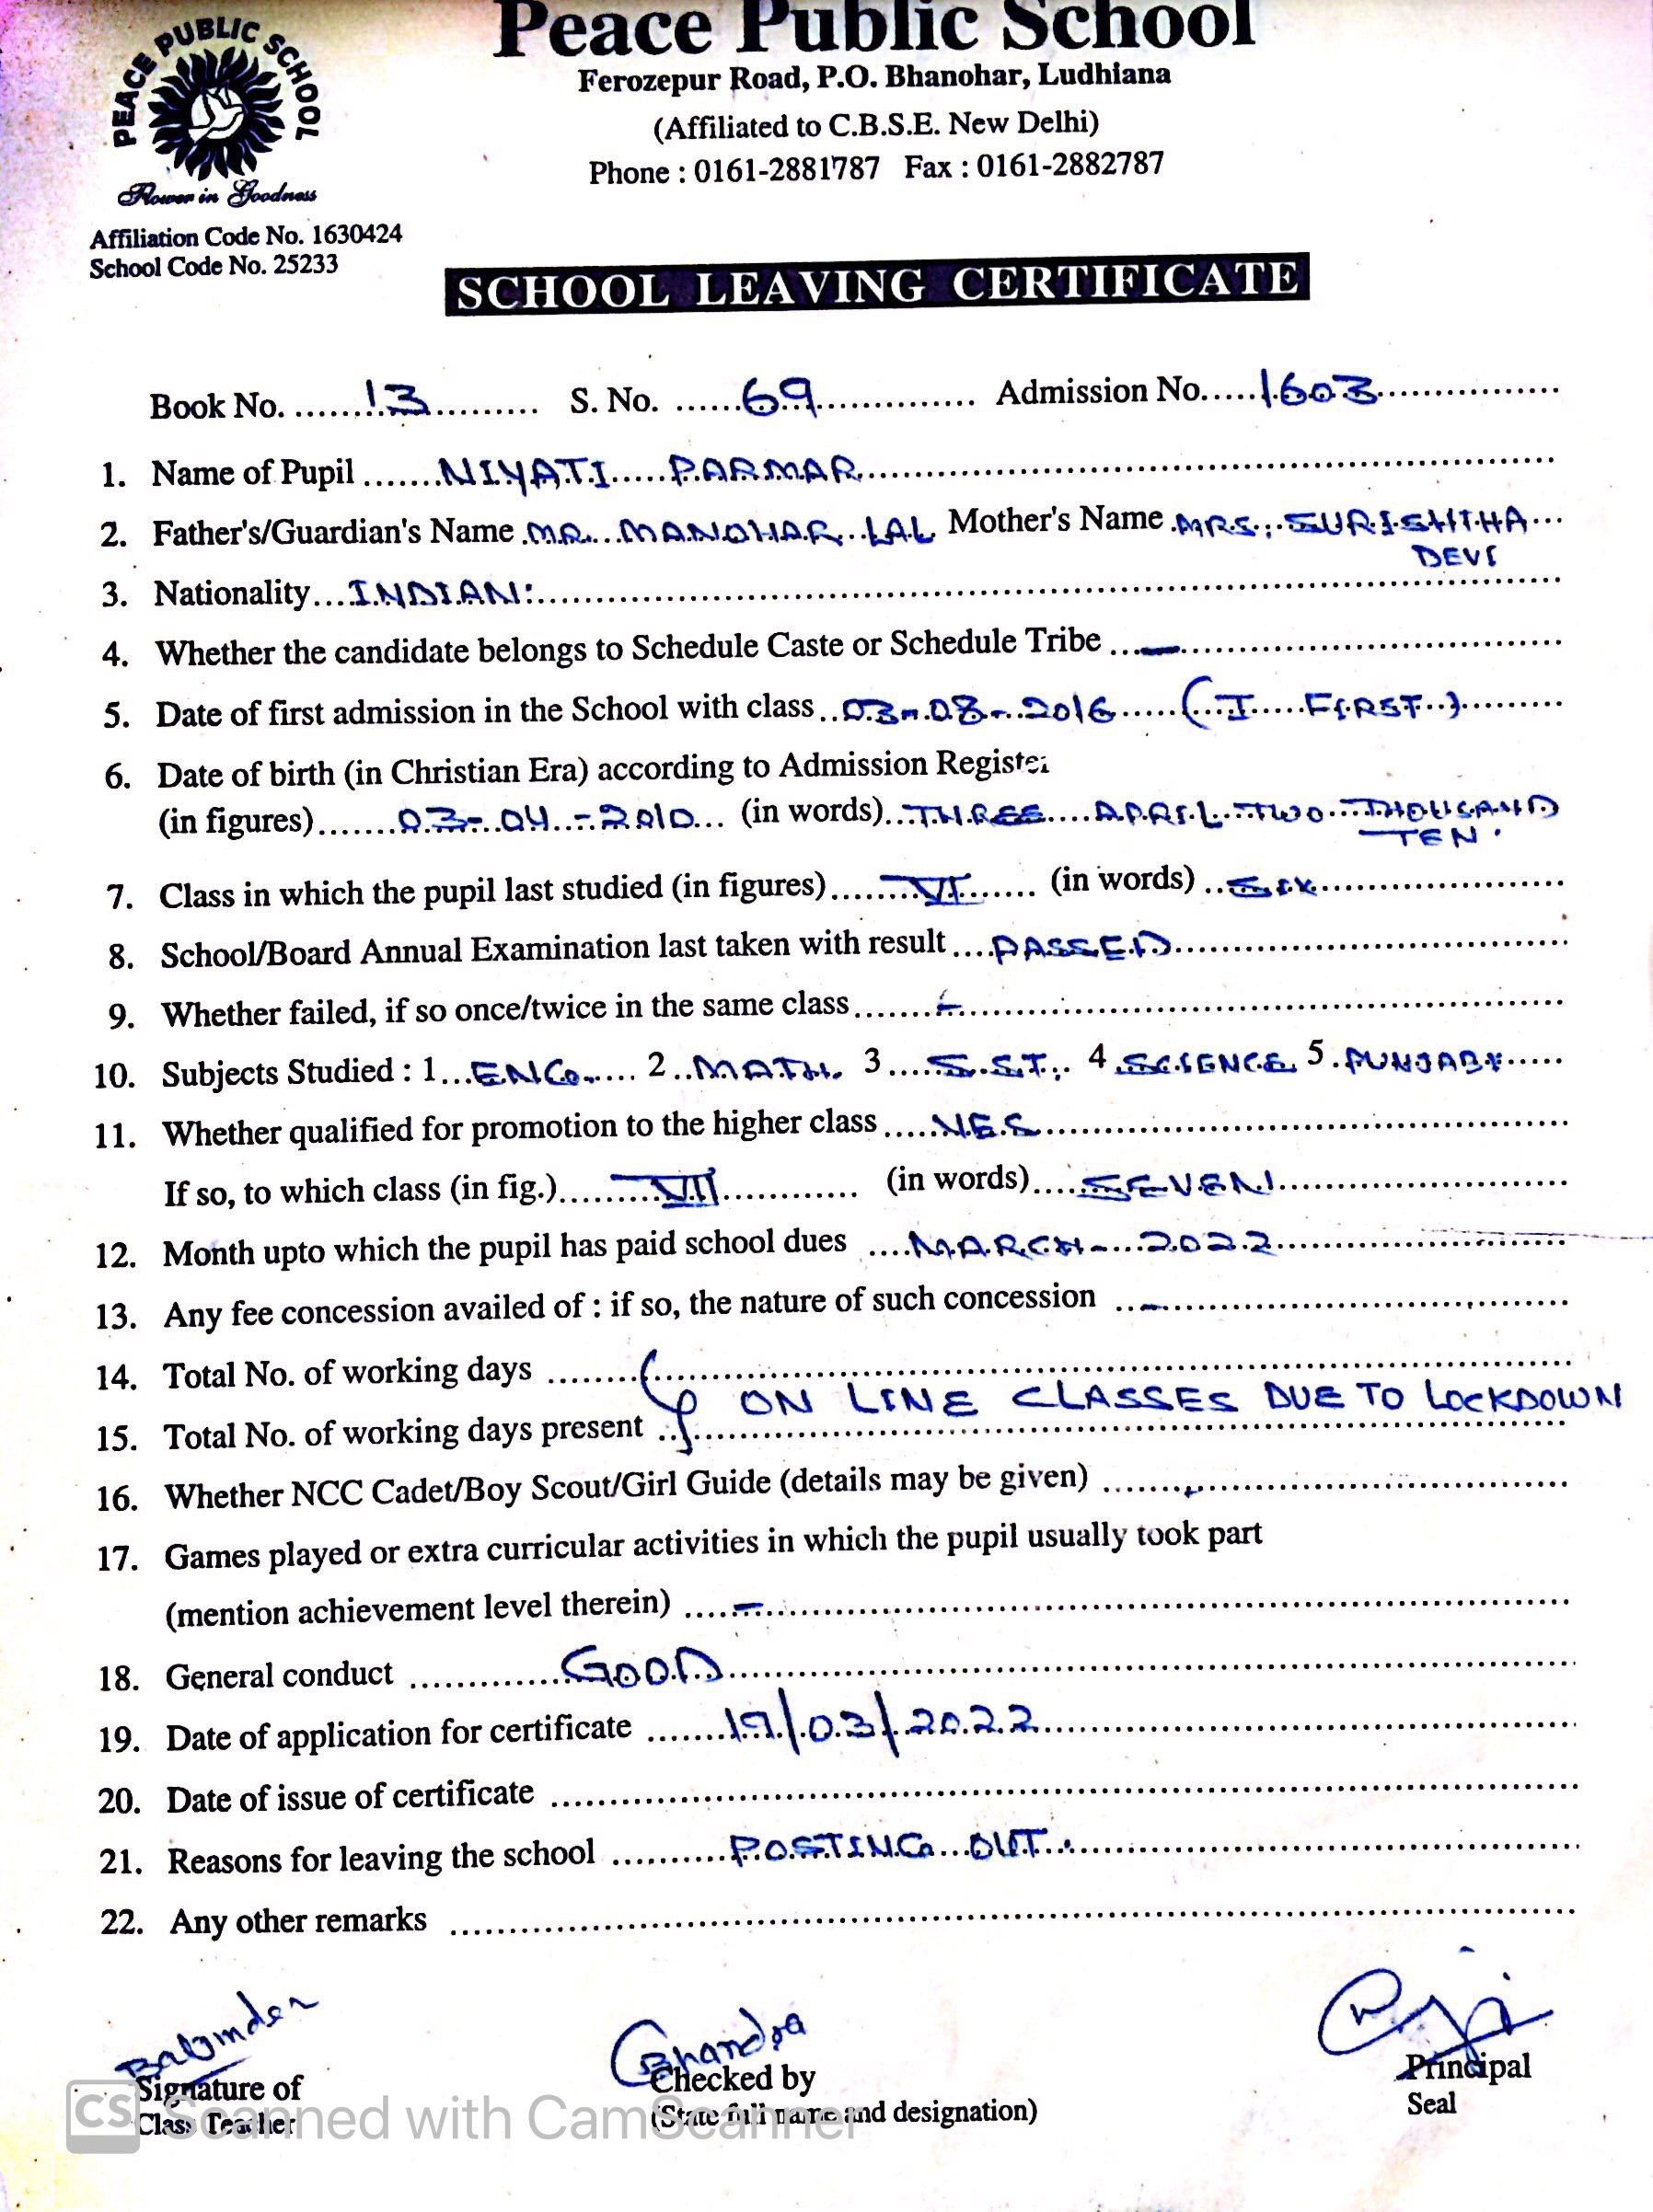 PEACE PUBLIC SCHOOL
Power in Goodness
Peace Public School
Ferozepur Road, P.O. Bhanohar, Ludhiana
(Affiliated to C.B.S.E. New Delhi)
Phone : 0161-2881787 Fax : 0161-2882787
Affiliation Code No. 1630424
School Code No. 25233
SCHOOL LEAVING CERTIFICATE
Book No. 13 S. No. 69 Admission No. 1603
1. Name of Pupil NIYATI PARMAR
2. Father's/Guardian's Name MR. MANOHAR LAL Mother's Name MRS. SURISHTHA
DEVI
3. Nationality INDIAN
4. Whether the candidate belongs to Schedule Caste or Schedule Tribe –
5. Date of first admission in the School with class 03-08-2016 (I FIRST)
6. Date of birth (in Christian Era) according to Admission Register
(in figures) 03-04-2010 (in words) THREE APRIL TWO THOUSAND
TEN.
7. Class in which the pupil last studied (in figures) VI (in words) SIX
8. School/Board Annual Examination last taken with result PASSED
9. Whether failed, if so once/twice in the same class –
10. Subjects Studied : 1 ENG. 2 MATH. 3 S.S.T. 4 SCIENCE 5 PUNJABI
11. Whether qualified for promotion to the higher class YES
If so, to which class (in fig.) VII (in words) SEVEN
12. Month upto which the pupil has paid school dues MARCH - 2022
13. Any fee concession availed of : if so, the nature of such concession –
14. Total No. of working days
ON LINE CLASSES DUE TO LOCKDOWN
15. Total No. of working days present
16. Whether NCC Cadet/Boy Scout/Girl Guide (details may be given)
17. Games played or extra curricular activities in which the pupil usually took part
(mention achievement level therein) –
18. General conduct GOOD
19. Date of application for certificate 19/03/2022
20. Date of issue of certificate
21. Reasons for leaving the school POSTING OUT.
22. Any other remarks
Chandra
Signature of Checked by Principal
Class Teacher (State full name and designation) Seal
CS Scanned with CamScanner